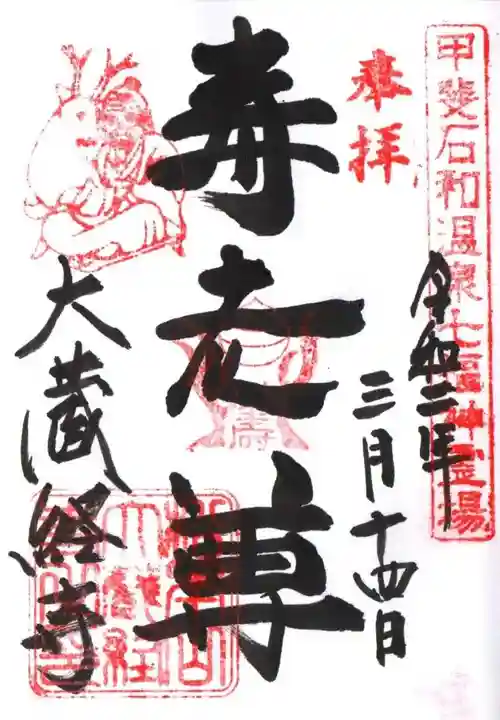 甲斐石和温泉七福神霊場
奉拝
令和二年
三月十四日
寿老尊
寿
大蔵経寺